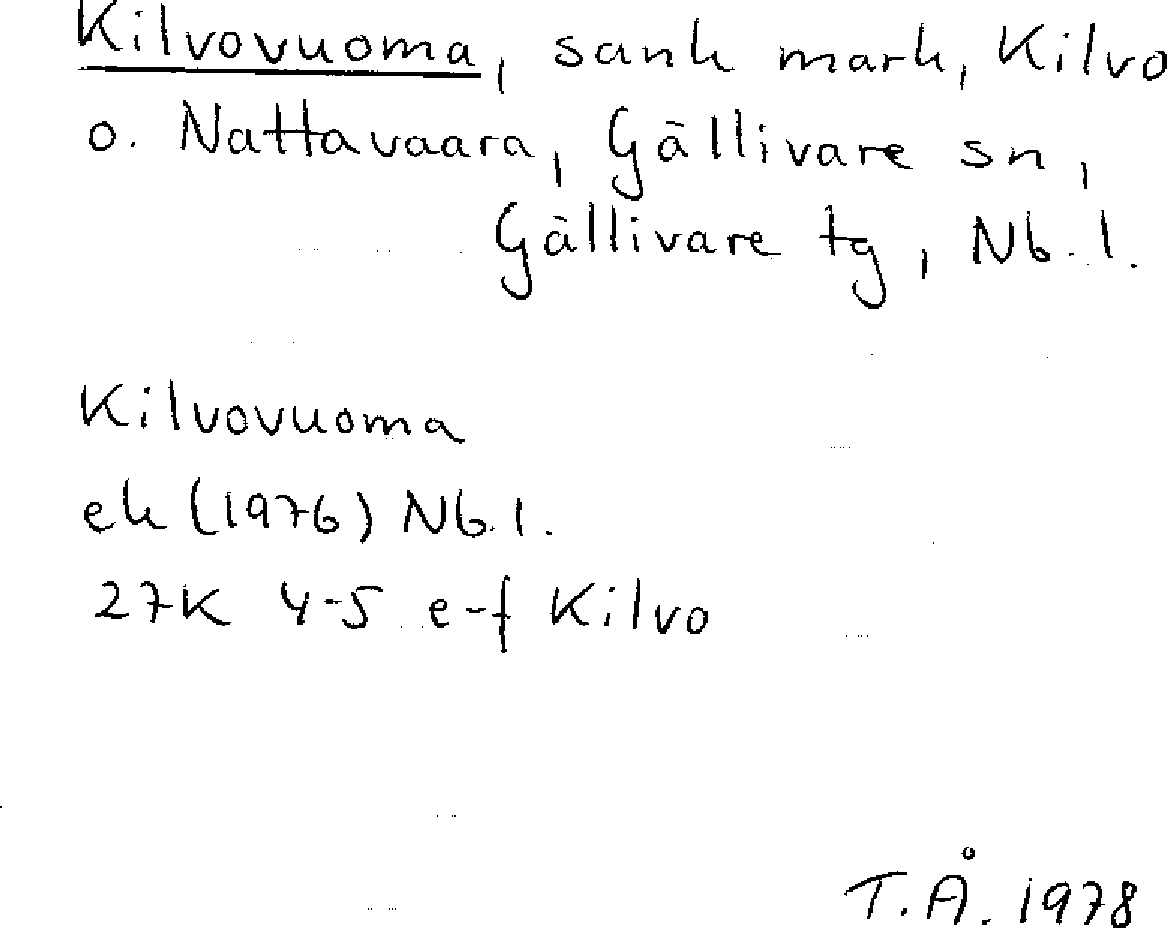 Kilvovuoma, sank mark, Kilvo
o. Nattavaara, Gällivare sn,
Gällivare tg, Nb. l.
Kilvovuoma
ek (1976) Nb. l.
27K 4-5 e-f Kilvo
T.Å. 1978